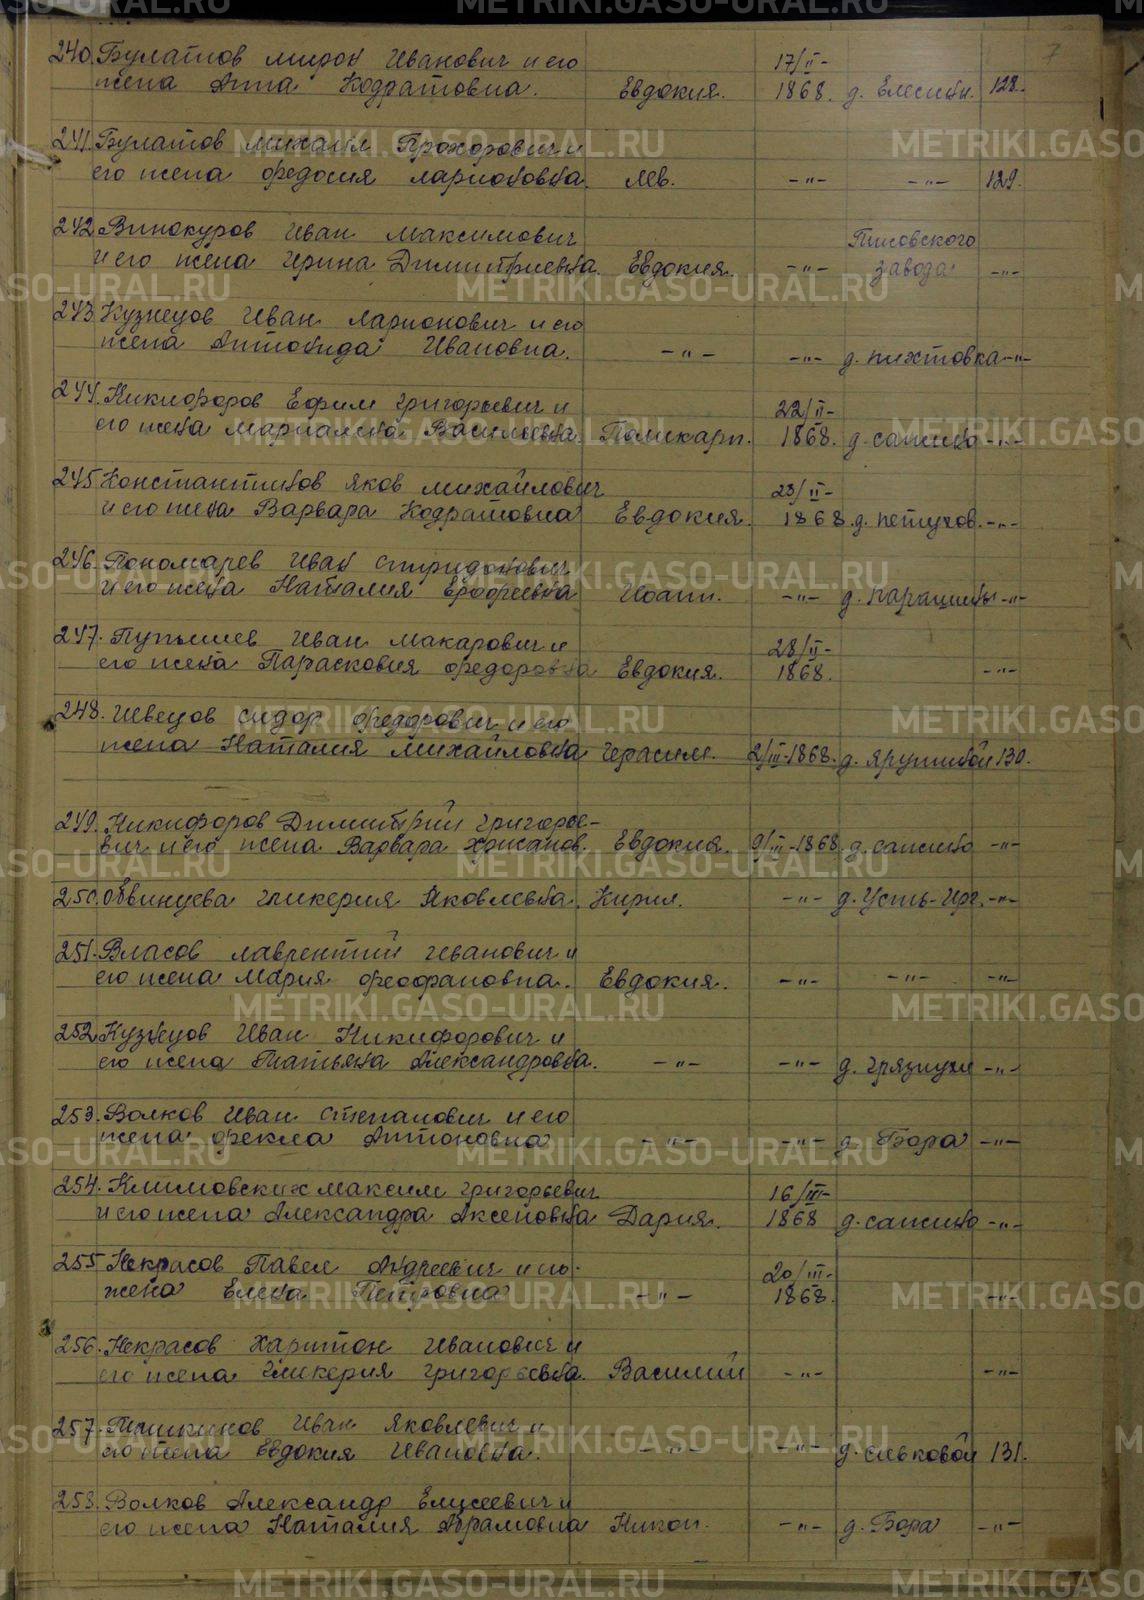 7
240. Булатов Мирон Иванович и его 17/II-
жена Анна Кодратовна. Евдокия. 1868. д. Елесины. 128.
241. Булатов Михаил Прохорович и
его жена Федосия Ларионовна. Лев. -"- -"- 129.
242. Винокуров Иван Максимович Тисовского
и его жена Ирина Димитриевна. Евдокия. -"- завода -"-
243. Кузнецов Иван Ларионович и его
жена Антонида Ивановна. -"- -"- д. Пихтовка -"-
244. Никифоров Ефим Григорьевич и 22/II-
его жена Мариамна Васильевна. Поликарп. 1868. д. Сажино -"-
245. Константинов Яков Михайлович 23/II-
и его жена Варвара Кодратовна Евдокия. 1868. д. Петухов. -"-
246. Пономарев Иван Спиридонович
и его жена Наталия Ерофеевна Иоанн. -"- д. Карацины -"-
247. Пупышев Иван Макарович и 28/II-
его жена Парасковия Федоровна Евдокия. 1868. -"-
248. Швецов Сидор Федорович и его
жена Наталия Михайловна Герасим. 2/III-1868. д. Ярушиной 130.
249. Никифоров Димитрий Григорье-
вич и его жена Варвара Хрисанов. Евдокия. 9/III-1868. д. Сажино -"-
250. Обвинцева Гликерия Яковлевна. Кирил. -"- д. Усть-Ирг. -"-
251. Власов Лаврентий Иванович и
его жена Мария Феофановна. Евдокия. -"- -"- -"-
252. Кузнецов Иван Никифорович и
его жена Татьяна Александровна. -"- -"- д. Грязнухи -"-
253. Волков Иван Степанович и его
жена Фекла Антоновна -"- -"- д. Бора -"-
254. Климовских Максим Григорьевич 16/III-
и его жена Александра Аксеновна Дария. 1868 д. Сажино -"-
255 Некрасов Павел Андреевич и его. 20/III-
жена Елена Петровна -"- 1868. -"-
256. Некрасов Харитон Иванович и
его жена Гликерия Григорьевна. Василий -"- -"-
257. Тишкинов Иван Яковлевич и
его жена Евдокия Ивановна. -"- -"- д. Сивковой 131.
258. Волков Александр Елисеевич и
его жена Наталия Абрамовна Никон. -"- д. Бора -"-
METRIKI.GASO-URAL.RU